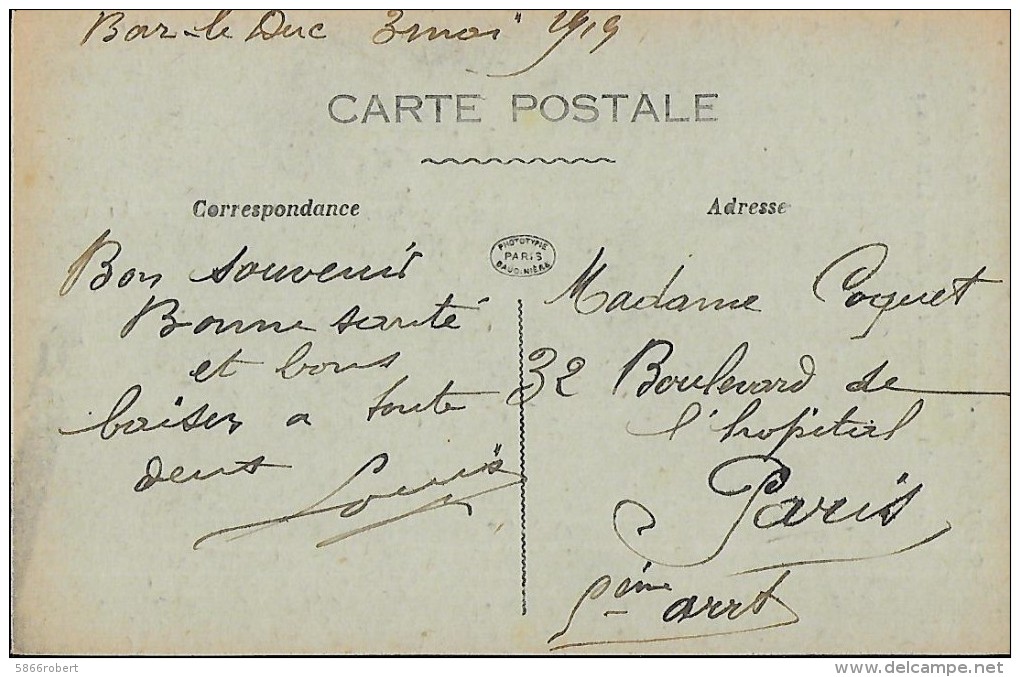 Bar-le Duc 3 mai 1919
CARTE POSTALE
Correspondance
Bon souvenir
Bonne santé
et bons
baiser a toute
deux
Louis
PHOTOTYPIE
PARIS
BAUDINIÈRE
Adresse
Madame Coquet
32 Boulevard de
l'hopital
Paris
5ème arrt
5866robert
www.delcampe.net